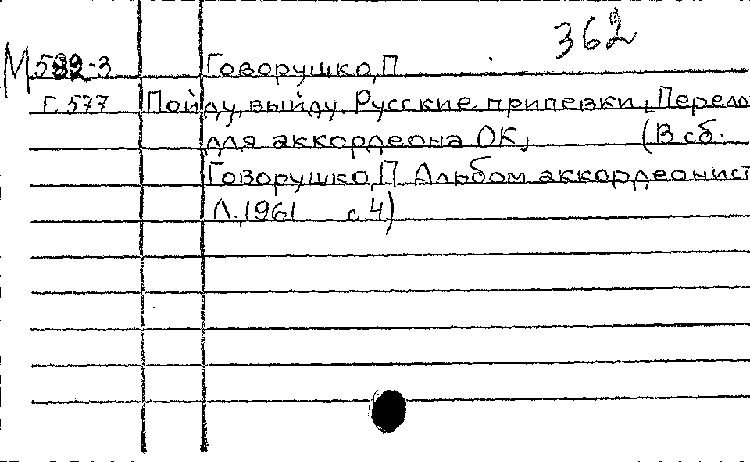 362
М 592-3 Говорушко, П.
Г 577 Пойду, выйду. Русские припевки, Перело
для аккордеона ОК, (В сб.
Говорушко, П. Альбом аккордеонист
Л., 1961 с. 4)